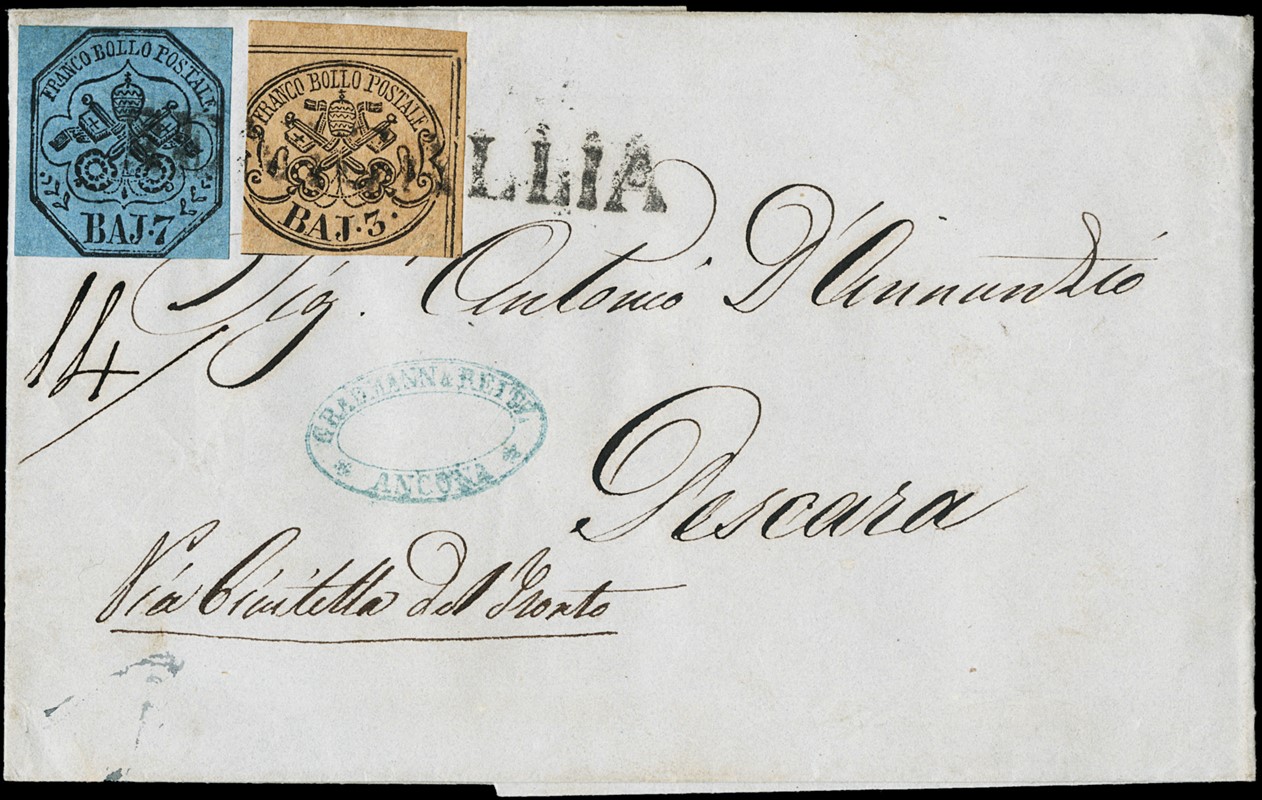 FRANCO BOLLO POSTALE
BAJ·7
FRANCO BOLLO POSTALE
BAJ·3·
LLIA
Sig. Antonio D'Annunzio
14
ANCONA
Pescara
Via Civitella del Tronto